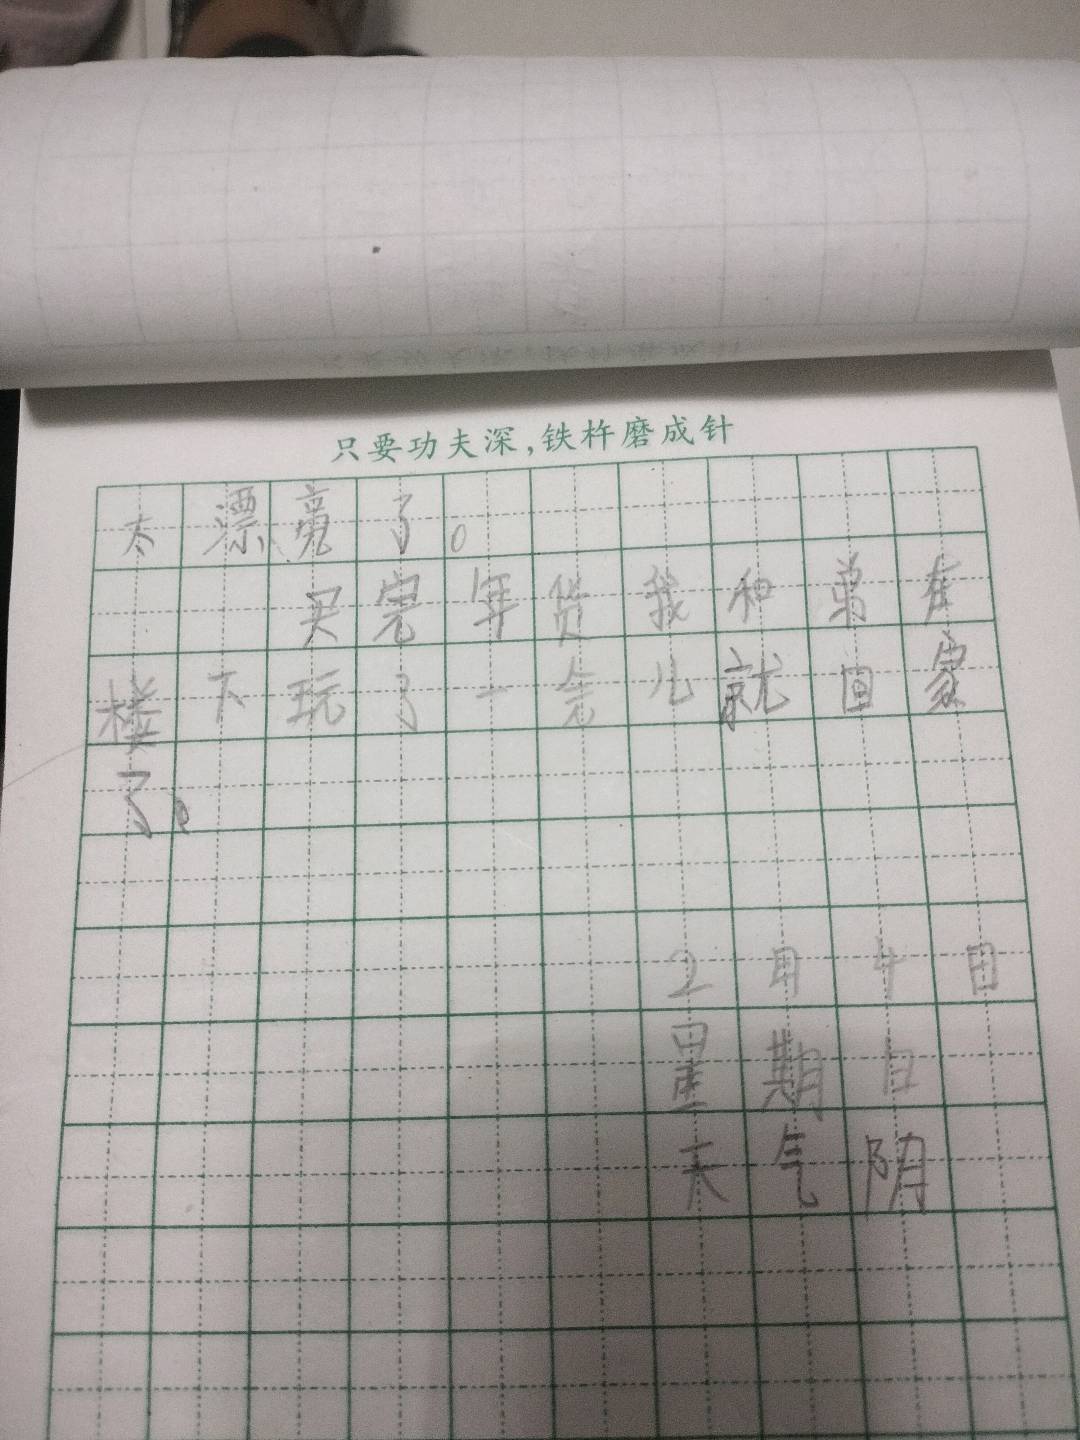 只要功夫深,铁杵磨成针
太漂亮了。
买完年货我和弟在
楼下玩了一会儿就回家
了。
2月4日
星期日
天气阴